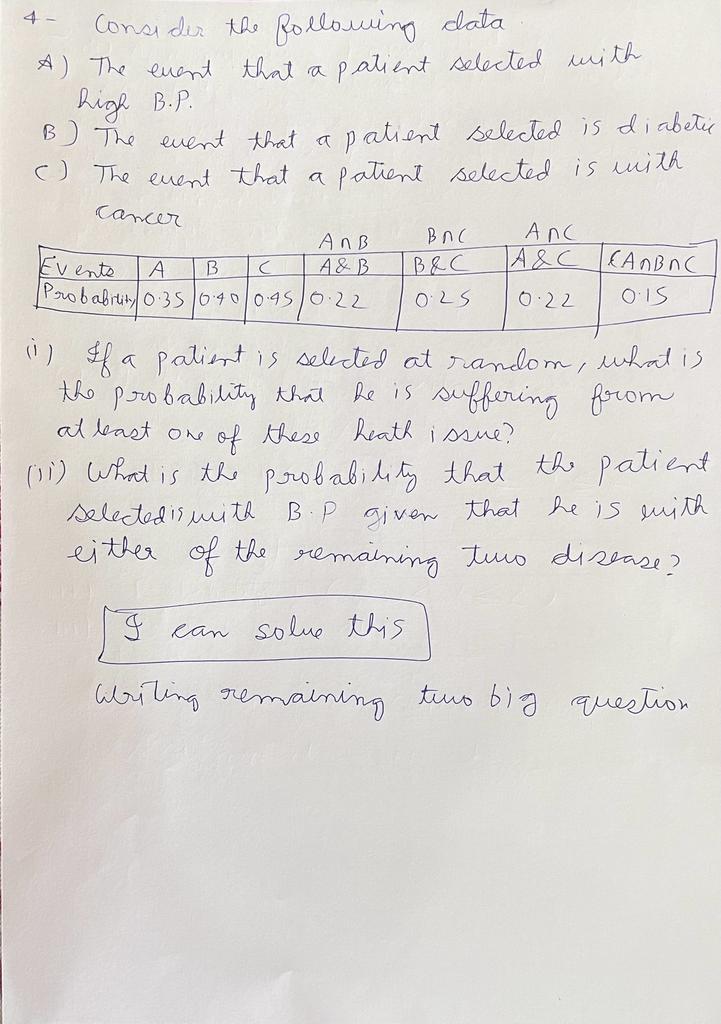 4- Consider the following data.
A) The event that a patient selected with
high B.P.
B) The event that a patient selected is diabetic
C) The event that a patient selected is with
cancer
A∩B B∩C A∩C
Events A B C A & B B & C A & C A∩B∩C
Probability 0.35 0.40 0.45 0.22 0.25 0.22 0.15
(i) If a patient is selected at random, what is
the probability that he is suffering from
at least one of these heath issue?
(ii) What is the probability that the patient
selected is with B.P given that he is with
either of the remaining two disease?
I can solve this
Writing remaining two big question